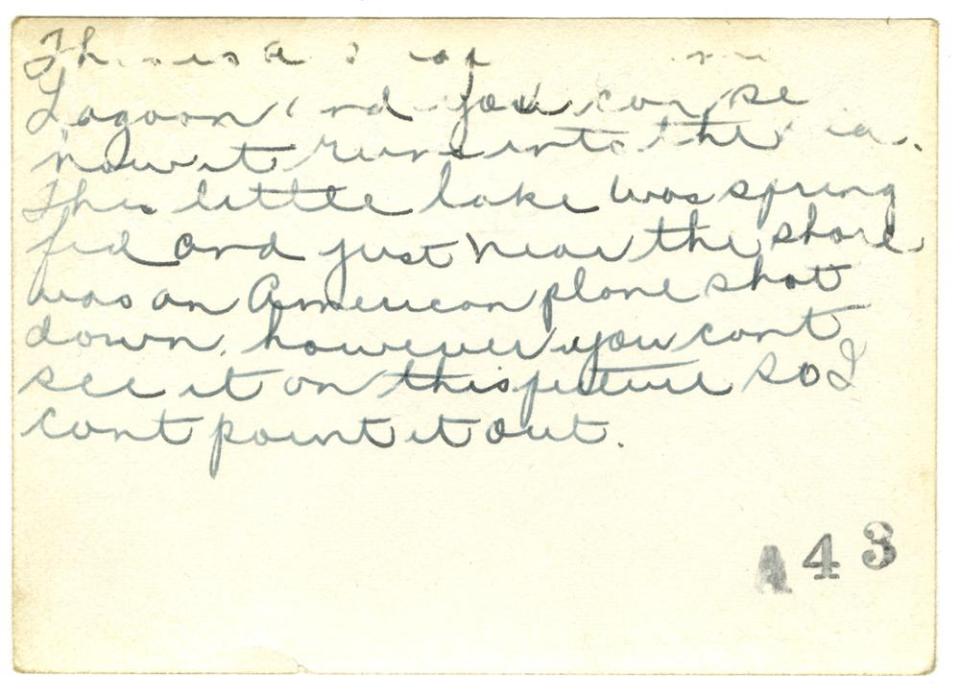 This is a
Lagoon and you can see
how it runs into the sea.
This little lake was spring
fed and just near the shore
was an American plane shot
down, however you cant
see it on this picture so I
cant point it out.
A43